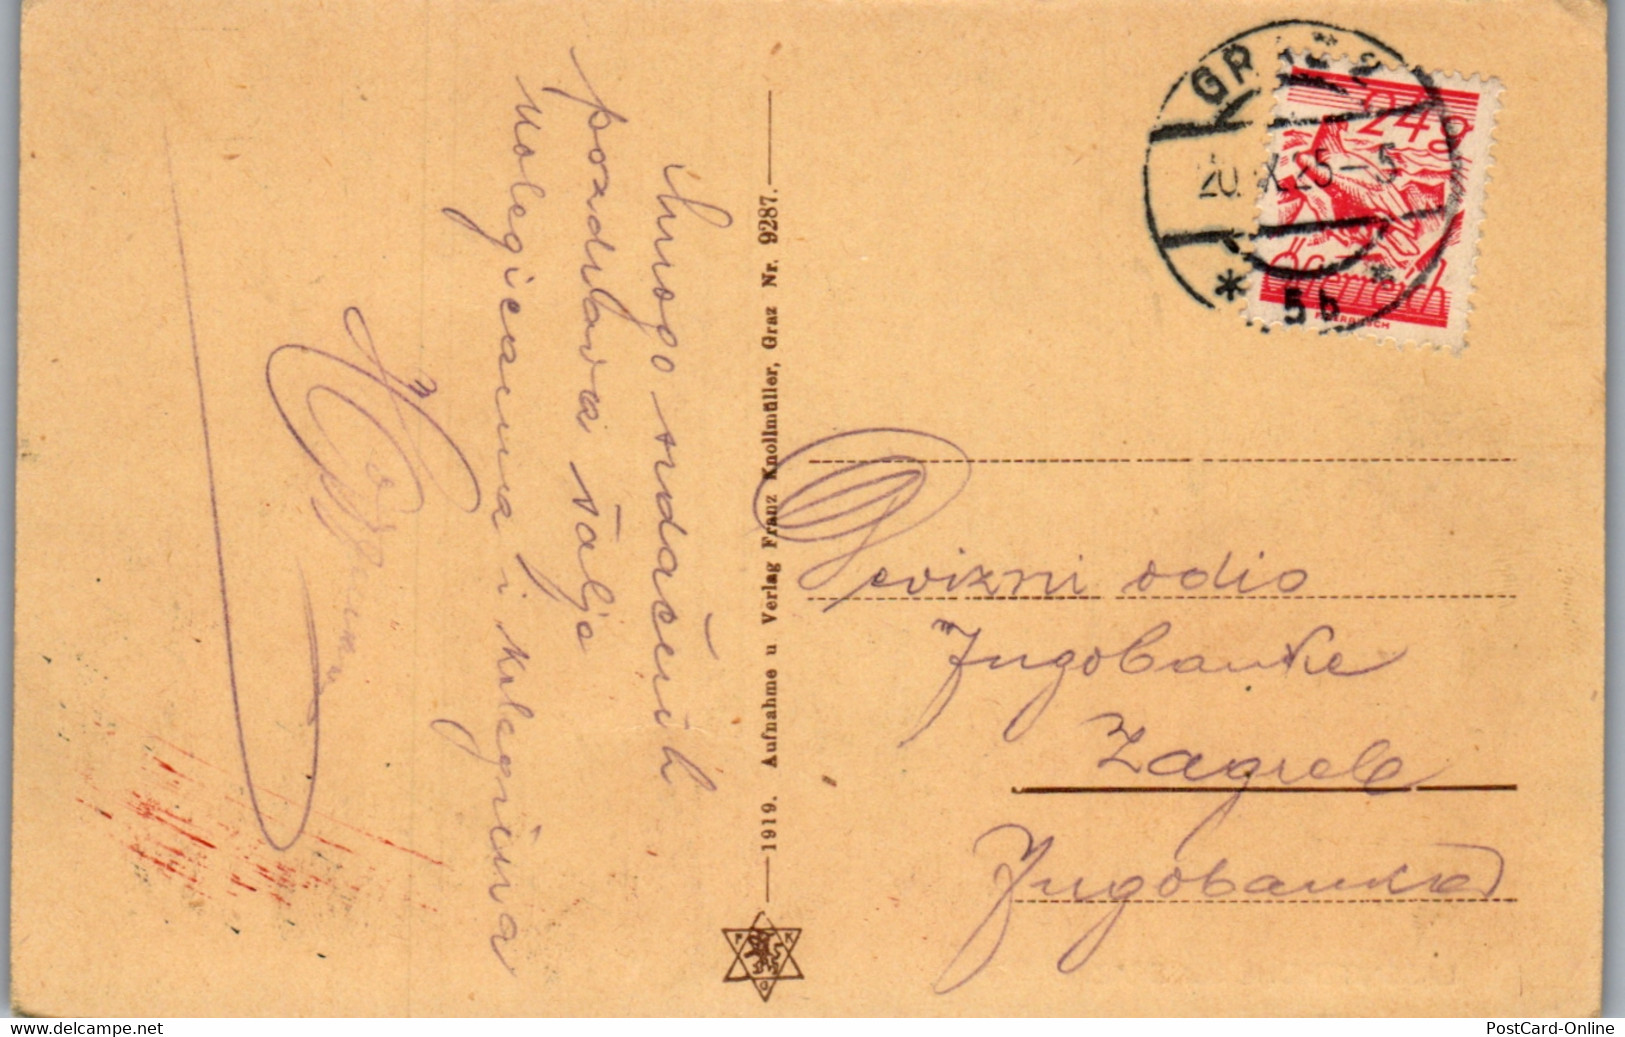 Mnogo srdačnih
pozdrava šalje
kolegicama i kolegama
1919. Aufnahme u Verlag Franz Knollmüller, Graz Nr. 9287.
F K
G
GRAZ 2
20. IX. 25 - 5
* 5b *
24g
Österreich
Devizni odio
Jugobanke
Zagreb
Jugobanka
www.delcampe.net
PostCard-Online